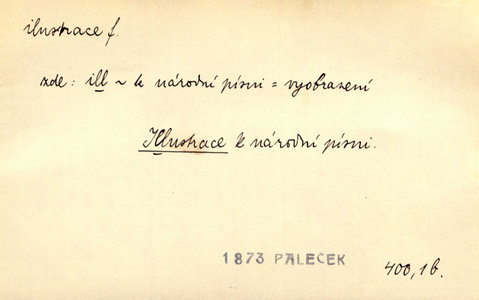 ilustrace f.
zde: ill ~ k národní písni = vyobrazení
Illustrace k národní písni.
1873 PALEČEK
400,1b.